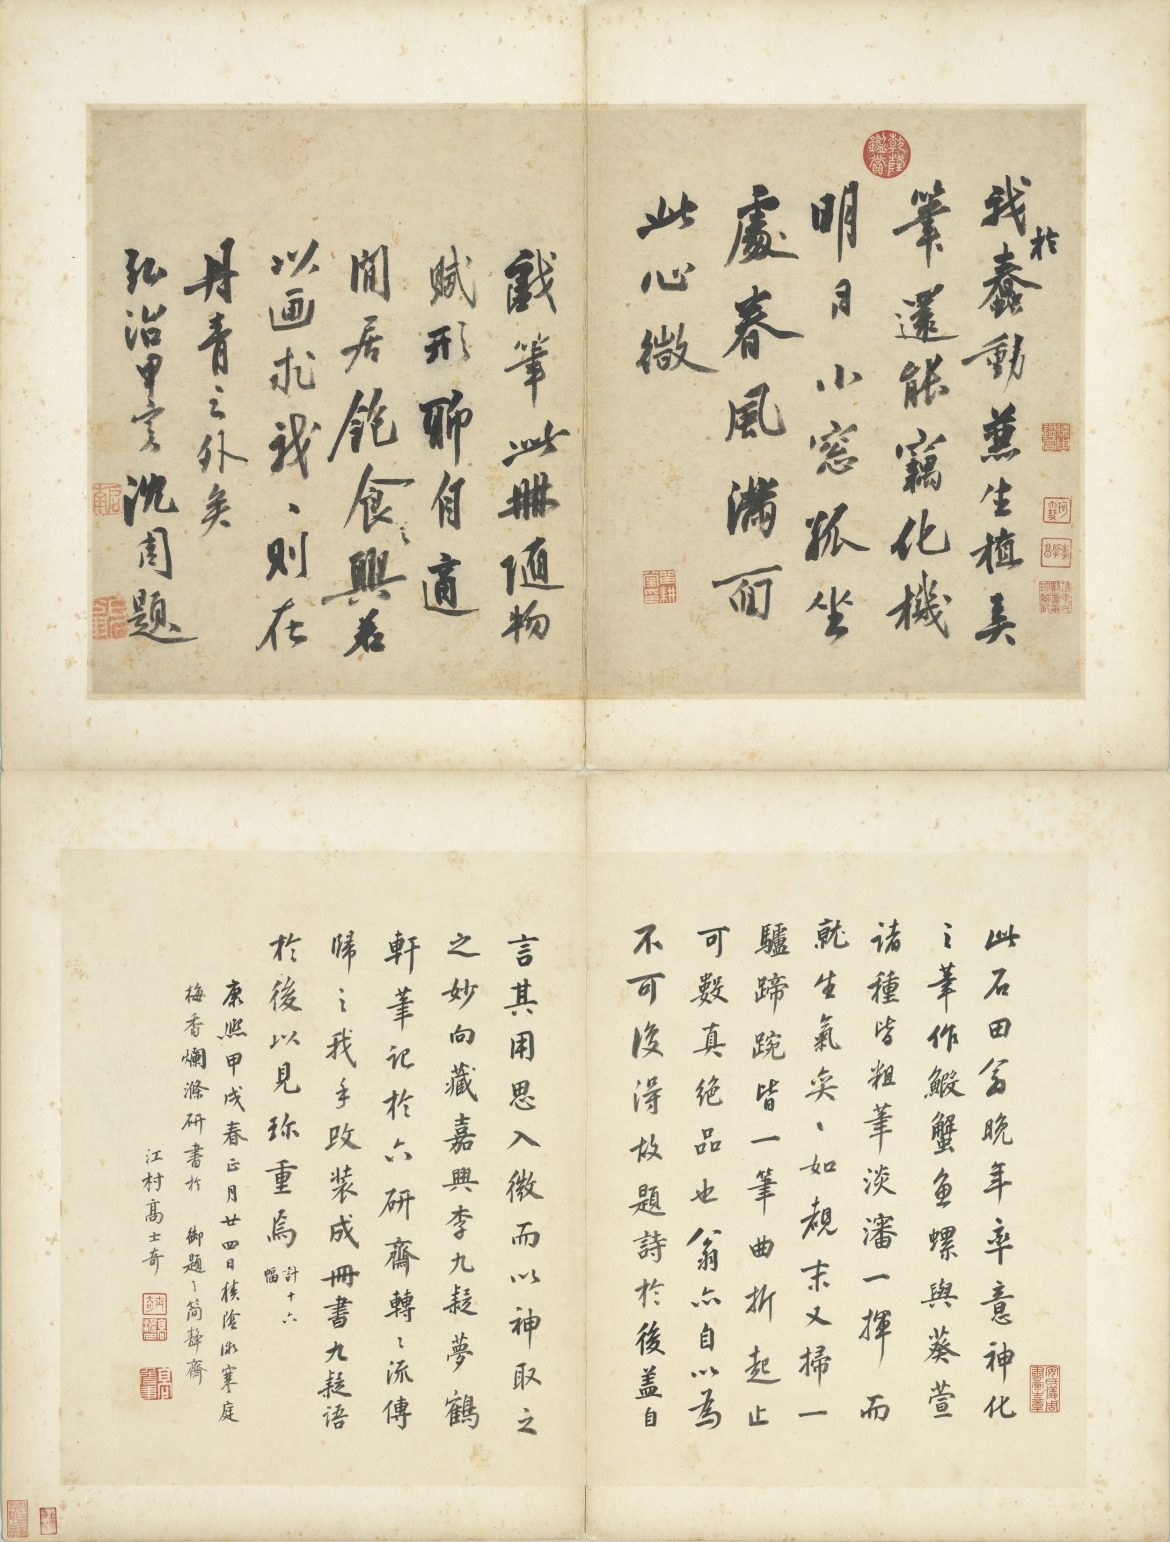 我於蠢動兼生植美
筆還能竊化機
明月小窓孤坐
處春風滿面
此心微
戲筆此冊随物
賦形聊自適
閒居飽食之興若
以画求我、則在
丹青之外矣
弘治甲寅沈周題
乾隆鑑賞
此石田翁晚年率意神化
之筆作鰕蟹魚螺與葵萱
諸種皆粗筆淡瀋一揮而
就生氣奕、如覩末又掃一
驢蹄踠皆一筆曲折起止
可數真絕品也翁亦自以為
不可復得故題詩於後蓋自
言其用思入微而以神取之
之妙向藏嘉興李九疑夢鶴
軒筆記於六研齋轉、流傳
歸之我手改装成冊書九疑語
於後以見珎重焉計十六幅
康熙甲戌春正月廿四日積陰漸寒庭
梅香爛滌研書於 御題、簡靜齋
江村高士奇